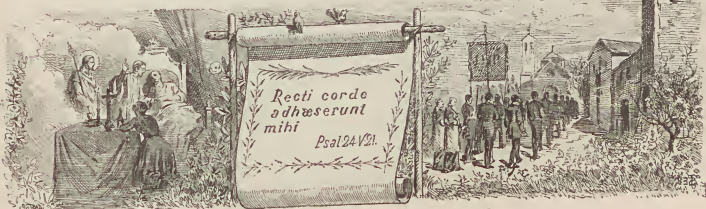 Recti corde
adhæserunt
mihi
Psal.24.V.21.